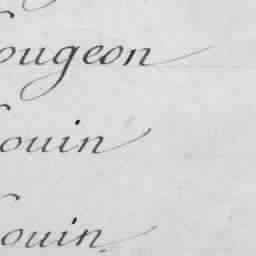 ougeon
ouin
ouin